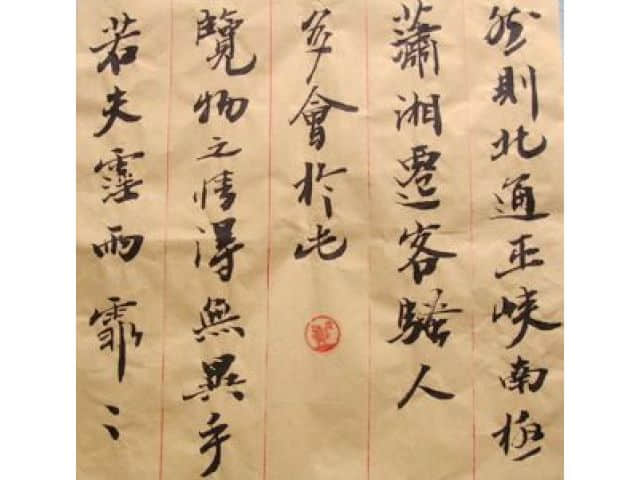 然則北通巫峽南極
瀟湘遷客騷人
多會於此
覽物之情得無異乎
若夫霪雨霏〻